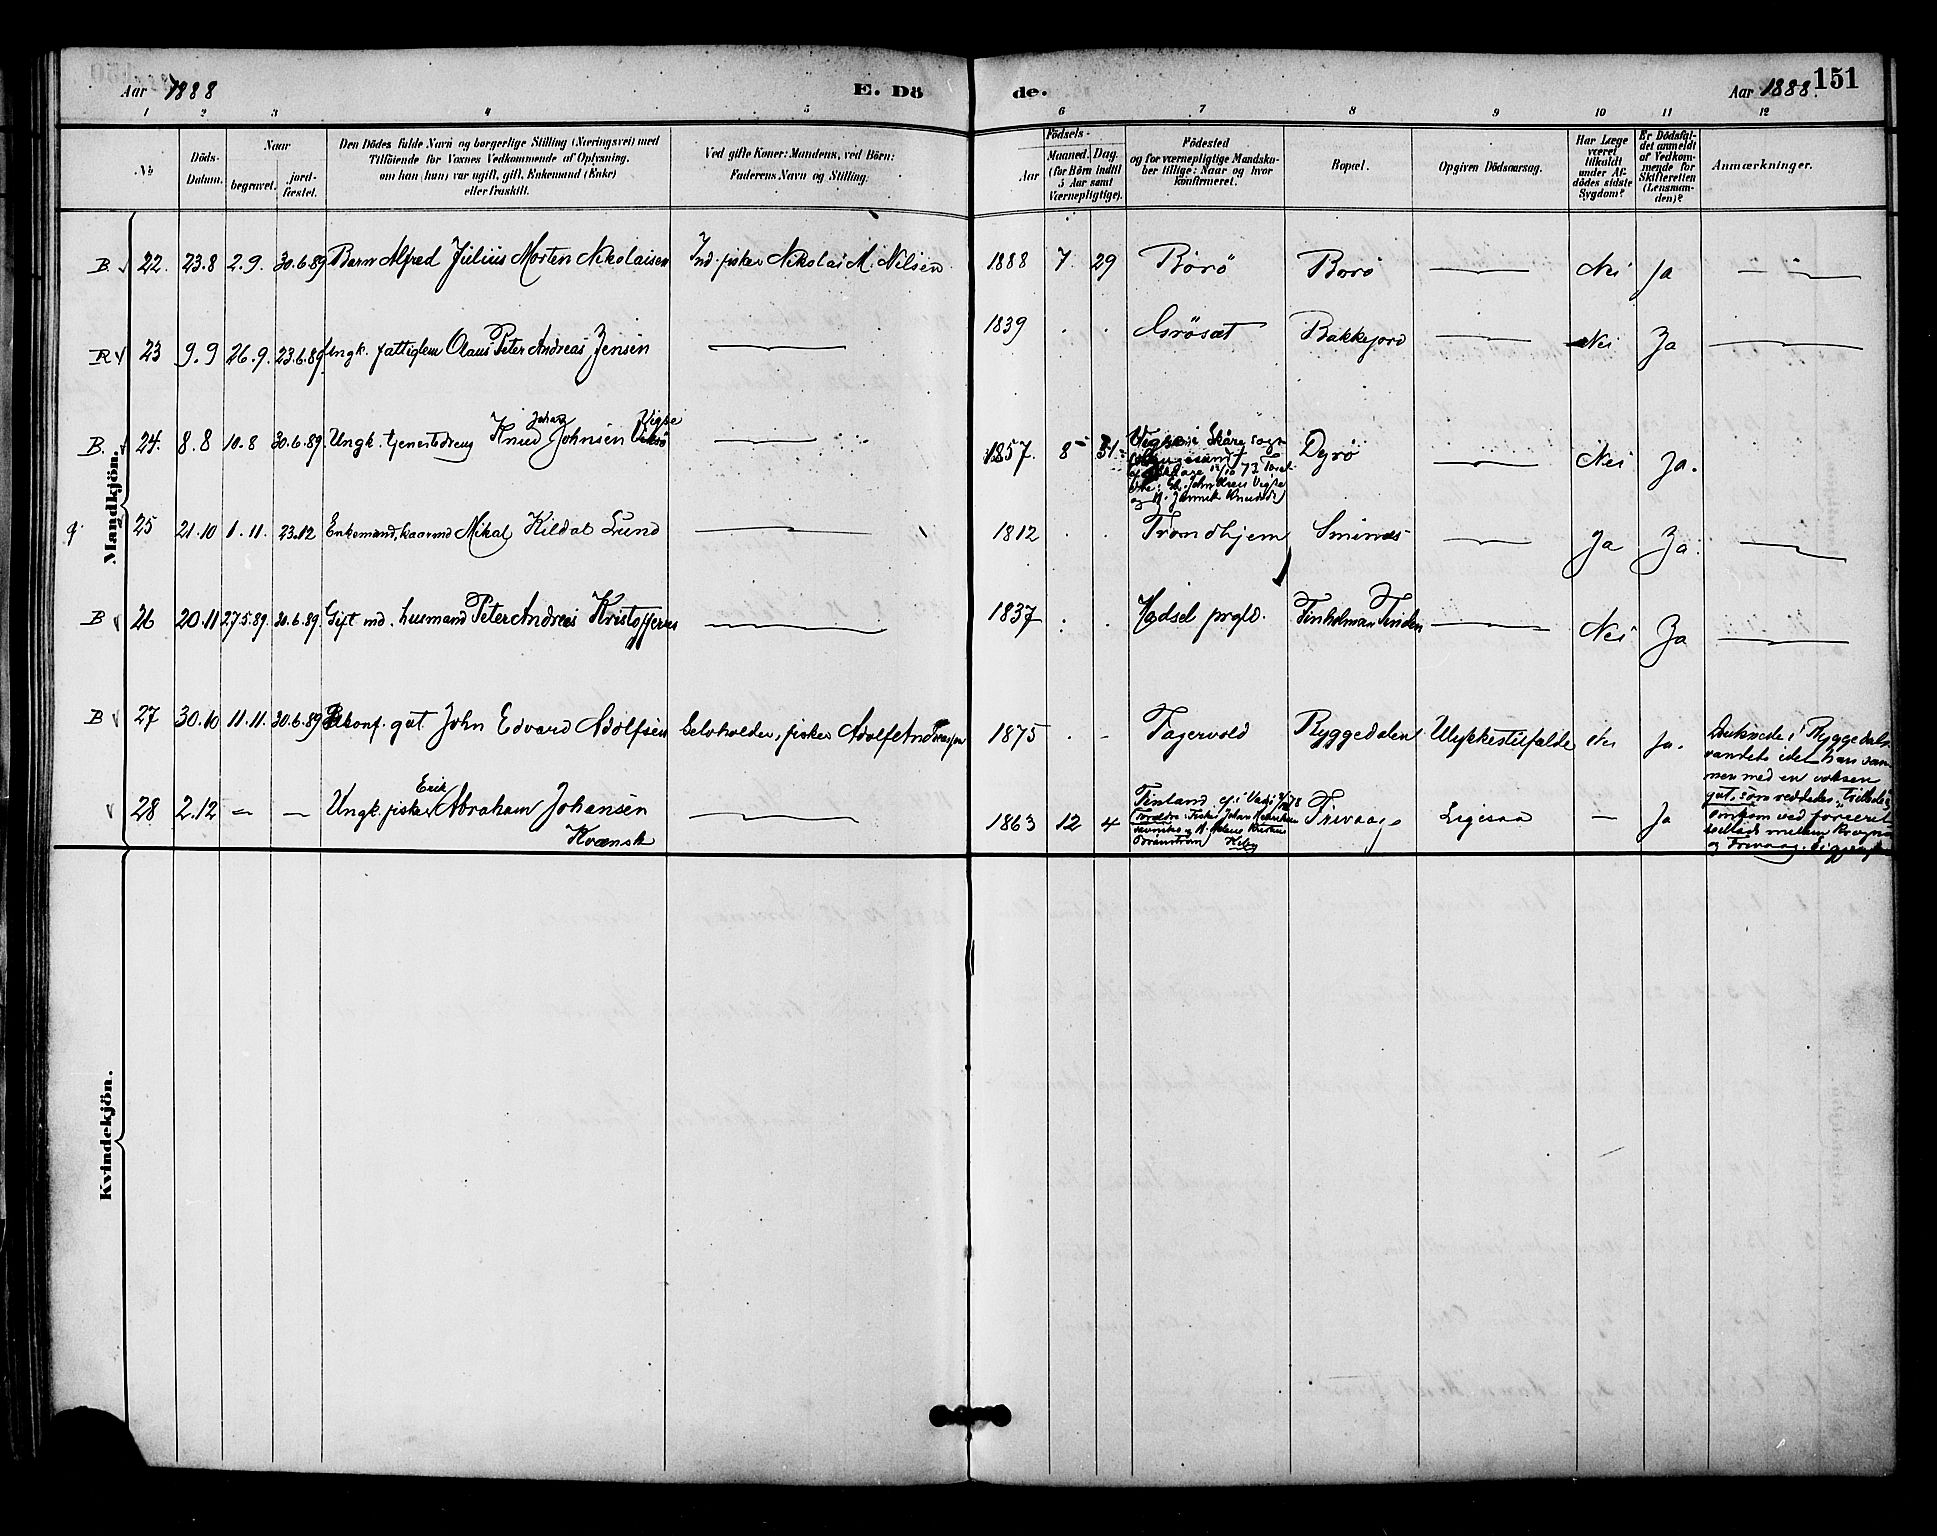 Aar 1888
E. Dö
de.
Aar 1888. 151
1 2 3 4 5 6 7 8 9 10 11 12
No
Döds-Datum.
Naar
begravet.
jord-fæstet.
Den Dödes fulde Navn og borgerlige Stilling (Næringsvei) med
Tilföiende for Voxnes Vedkommende af Oplysning,
om han (hun) var ugift, gift, Enkemand (Enke)
eller fraskilt.
Ved gifte Koner: Mandens, ved Börn:
Faderens Navn og Stilling.
Födsels-
Aar
Maaned. Dag.
(for Börn indtil
5 Aar samt
Værnepligtige).
Födested
og for værnepligtige Mandska-
ber tillige: Naar og hvor
konfirmeret.
Bopæl.
Opgiven Dödsaarsag.
Har Læge
været
tilkaldt
under Af-
dödes sidste
Sygdom?
Er Dödsfal-
det anmeldt
af Vedkom-
mende for
Skifteretten
(Lensman-
den)?
Anmærkninger.
Mandkjön.
B. 22. 23.8 2.9. 30.6.89 Barn Alfred Julius Morten Nikolaisen Ind. fisker Nikolai M. Nilsen 1888 7. 29 Börö Borö — Nei Ja —
R 23 9.9 26.9. 23.6.89 Ungk. fattiglem Olaus Peter Andreas Jensen — 1839 . . Grösæt Bakkejord — Nei Ja —
B. 24. 8.8 10.8 30.6.89. Ungk. tjenestedreng Knud Johan Johnsen Vigse — 1857. 8 31. Vigse i Skåre sogn Dyrö — Nei Ja.
25 21.10 1.11. 23.12 Enkemand, kaarmd Mikal Kildal Lund — 1812 . . Trondhjem Sminæs — Ja Ja. —
B 26 20.11 27.5.89. 30.6.89. Gift md. husmand Peter Andreas Kristoffersen — 1837 . . Hadsel prgld. Tinholman Tinden — Nei Ja —
B 27 30.10 11.11. 30.6.89 konf. gut John Edvard Adolfsen Selvholder, fisker Adolf Andreassen 1875 . - Fagervold Ryggedalen Ulykkestilfælde Nei Ja. Druknede i Ryggedals-
vandet idet han sam-
men med en voksen
gut, som reddedes,
28 2.12 — — Ungk. fisker Erik Abraham Johansen
Kvænsk — 1863 12 4 Finland Trivaag Ligesaa — Ja Omkom ved forceret
seilads mellem
og Trivaag.
Kvindekjön.